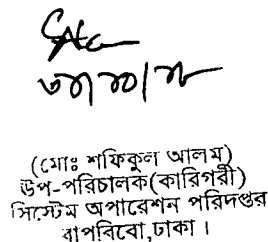 (মোঃ শফিকুল আলম)
উপ-পরিচালক(কারিগরী)
সিস্টেম অপারেশন পরিদপ্তর
বাপবিবো,ঢাকা ।